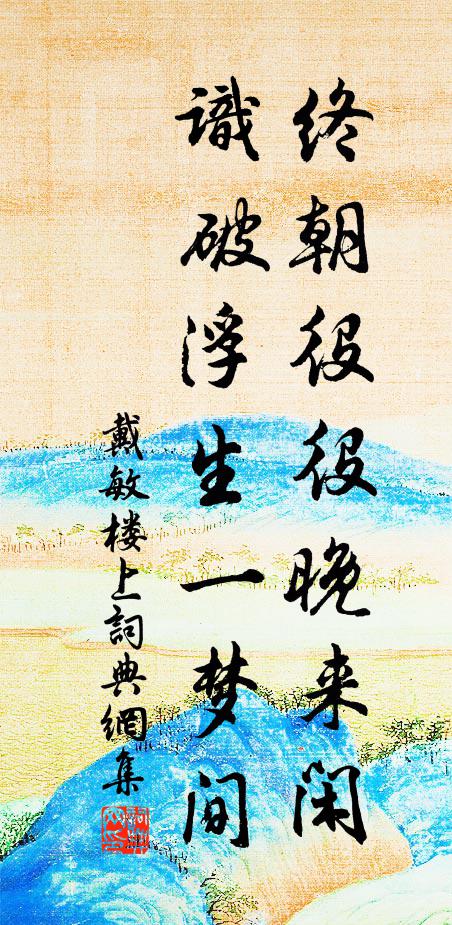 終朝役役晚来闲
識破浮生一梦间
戴敏楼上詞典網集